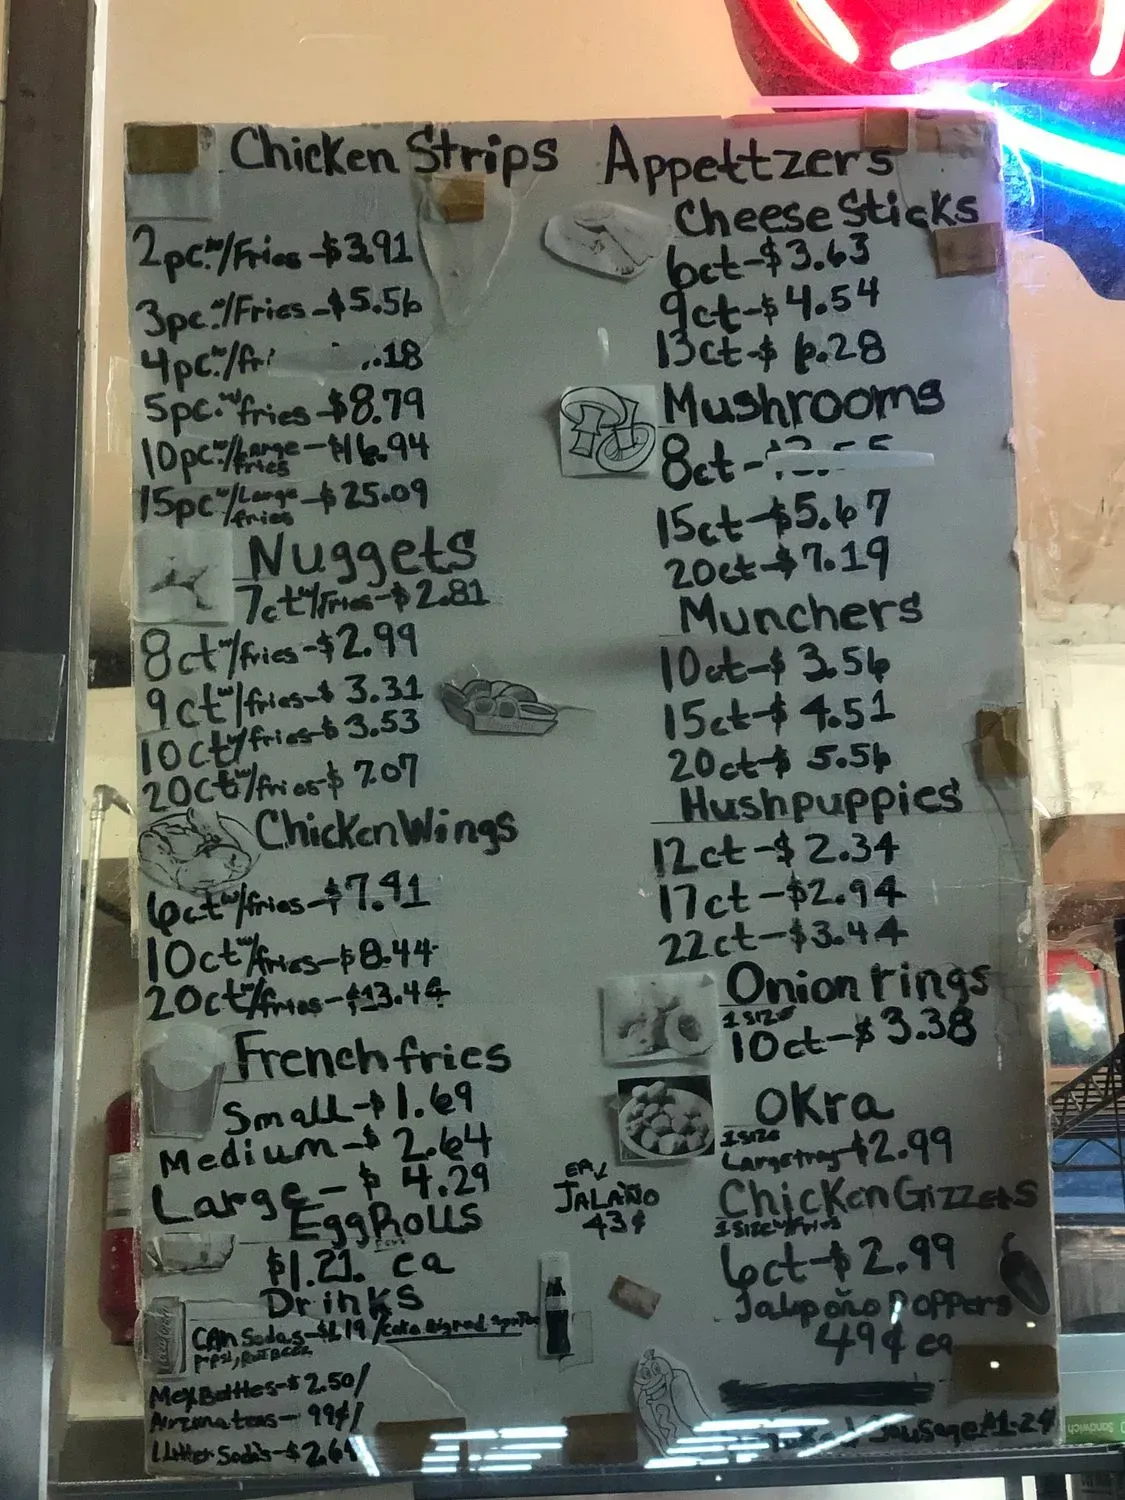 Chicken Strips
2pc. w/Fries - $3.91
3pc. w/Fries - $5.56
4pc. w/fri .18
5pc. w/fries - $8.79
10pc. w/Large fries - $16.94
15pc w/Large fries - $25.09
Nuggets
7ct w/Fries - $2.81
8ct w/fries - $2.99
9ct w/fries - $3.31
10ct w/fries - $3.53
20ct w/fries - $7.07
Chicken Wings
6ct w/fries - $7.91
10ct w/fries - $8.44
20ct w/fries - $13.44
French fries
Small - $1.69
Medium - $2.64
Large - $4.29
Egg Rolls
$1.21. ea
Drinks
CAN Sodas - $1.19 / Coke Big red
pepsi, Root BEER
Mex Bottles - $2.50/
Arizona teas - 99¢/
1 Liter Sodas - $2.69
Appettzers
Cheese Sticks
6ct - $3.63
9ct - $4.54
13ct - $6.28
Mushrooms
8ct -
15ct - $5.67
20ct - $7.19
Munchers
10ct - $3.56
15ct - $4.51
20ct - $5.56
Hushpuppies
12ct - $2.34
17ct - $2.94
22ct - $3.44
Onion rings
1 SIZE
10ct - $3.38
OKra
1 SIZE
Large tray $2.99
EA
JALAÑO
43¢
Chicken Gizzets
1 SIZE w/fries
6ct - $2.99
Jalapoño Poppers
49¢ ea
Sausage $1.24
Sandwich